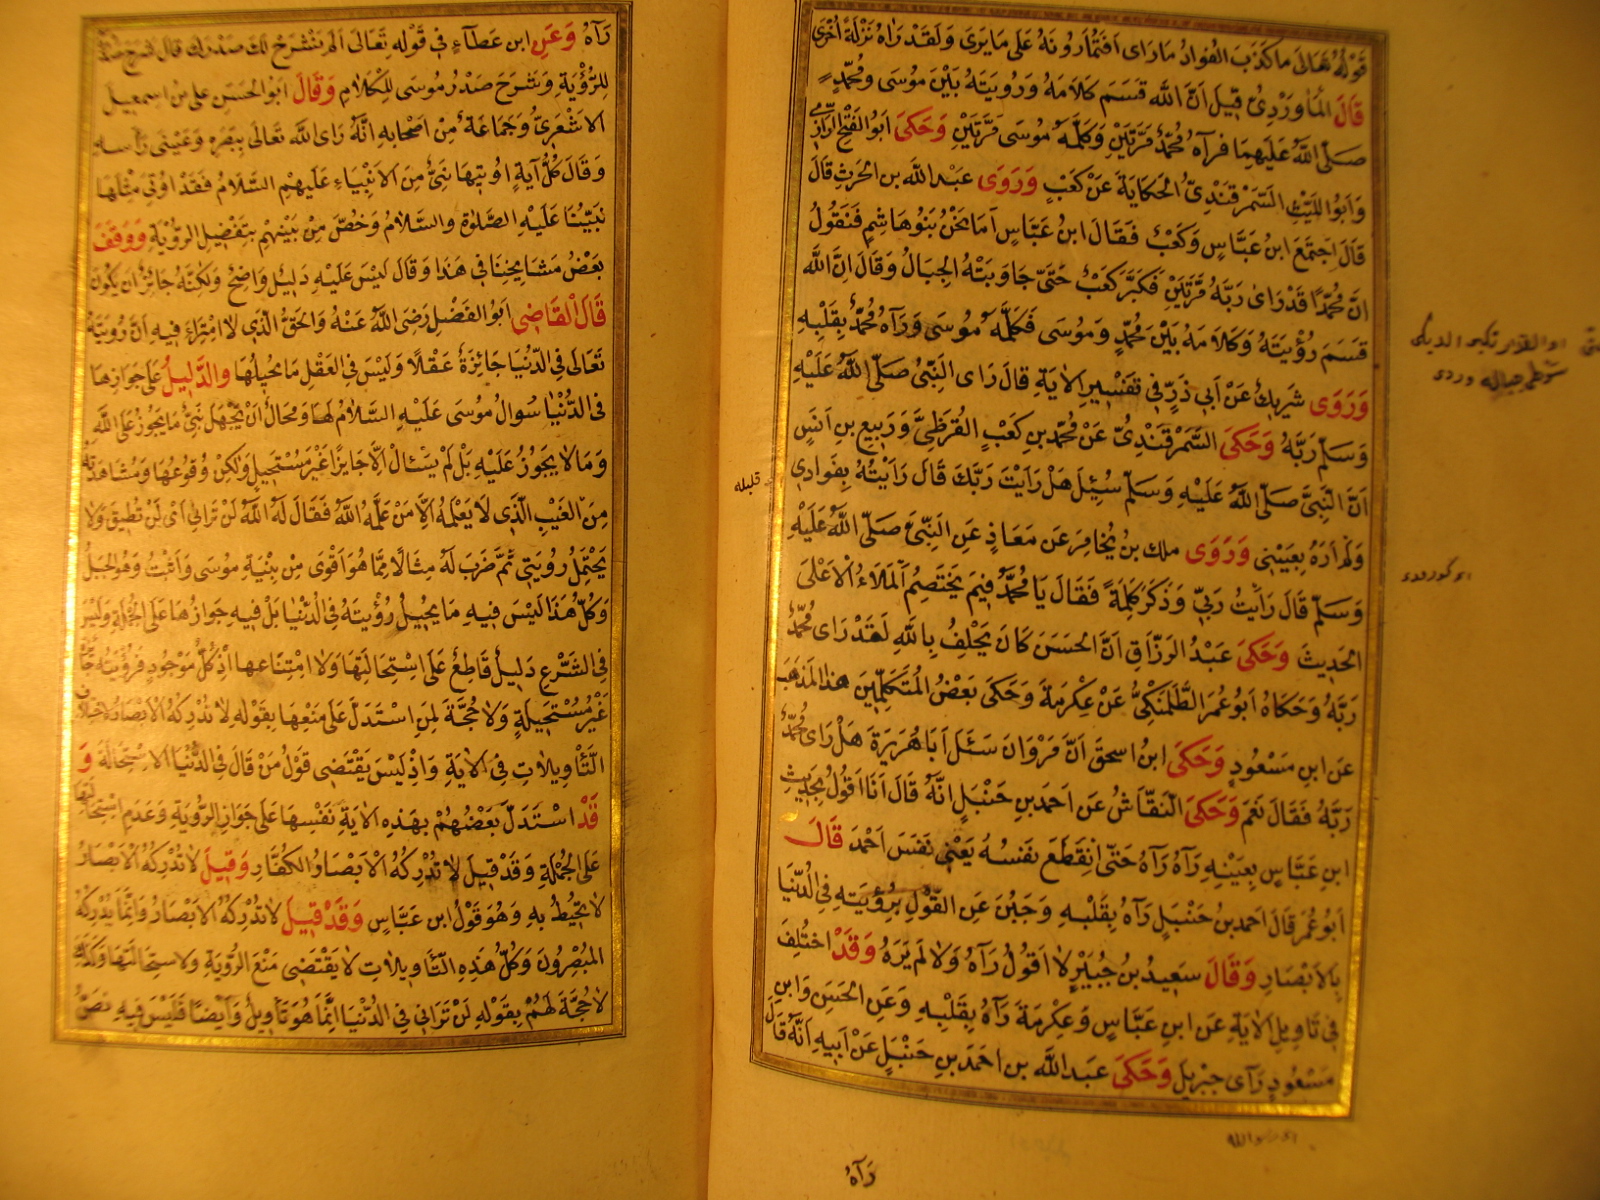 قَوْلُهُ تَعَالَى مَا كَذَبَ الفُؤَادُ مَا رَاى اَفَتُمَارُونَهُ عَلَى مَا يَرَى وَلَقَدْ رَاهُ نَزْلَةً اُخْرَى
قَالَ المَاوَرْدِىُّ قِيلَ اَنَّ اللّٰهَ قَسَمَ كَلَامَهُ وَرُويَتَهُ بَيْنَ مُوسَى وَمُحَمَّدٍ
صَلَّى اللّٰهُ عَلَيْهِمَا فَرَآهُ مُحَمَّدٌ مَرَّتَيْنِ وَكَلَّمَهُ مُوسَى مَرَّتَيْنِ وَحَكَى اَبُو الفَتْحِ الرَّازِىُّ
وَاَبُو اللَّيْثِ السَّمَرْقَنْدِىُّ الحِكَايَةَ عَنْ كَعْبٍ وَرَوَى عَبْدُ اللّٰه بن الحَرثِ قَالَ
قَالَ اِجْتَمَعَ ابنُ عَبَّاسٍ وَكَعْبٌ فَقَالَ ابنُ عَبَّاسٍ اَمَا نَحْنُ بَنُو هَاشِمٍ فَنَقُولُ
اِنَّ مُحَمَّدًا قَدْ رَاى رَبَّهُ مَرَّتَيْنِ فَكَبَّرَ كَعْبٌ حَتَّى جَاوَبَتْهُ الجِبَالُ وَقَالَ اِنَّ اللّٰهَ
قَسَمَ رُؤْيَتَهُ وَكَلَامَهُ بَيْنَ مُحَمَّدٍ وَمُوسَى فَكَلَّمَهُ مُوسَى وَرَآهُ مُحَمَّدٌ بِقَلْبِهِ
وَرَوَى شَرِيكٌ عَنْ اَبِى ذَرٍّ فِى تَفْسِيرِ الاٰيَةِ قَالَ رَاى النَّبِىُّ صَلَّى اللّٰهُ عَلَيْهِ
وَسَلَّمَ رَبَّهُ وَحَكَى السَّمَرْقَنْدِىُّ عَنْ مُحَمَّدِ بنِ كَعْبٍ القُرَظِىِّ وَرَبِيعِ بنِ اَنَسٍ
اَنَّ النَّبِىَّ صَلَّى اللّٰهُ عَلَيْهِ وَسَلَّمَ سُئِلَ هَلْ رَاَيْتَ رَبَّكَ قَالَ رَاَيْتُهُ بِفُوَادِى
وَلَمْ اَرَهُ بِعَيْنِى وَرَوَى ملك بن يُخَامِرَ عَن مَعَاذٍ عَنِ النَّبِىِّ صَلَّى اللّٰهُ عَلَيْهِ
وَسَلَّمَ قَالَ رَاَيْتُ رَبِّى وَذَكَرَ كَلِمَةً فَقَالَ يَا مُحَمَّدُ فِيمَ يَخْتَصِمُ الْمَلَاءُ الاَعْلَى
الحَدِيثَ وَحَكَى عَبْدُ الرَّزَّاقِ اَنَّ الحَسَنَ كَانَ يَحْلِفُ بِاللّٰهِ لَقَدْ رَاى مُحَمَّدٌ
رَبَّهُ وَحَكَاهُ اَبُو عُمَرَ الطَّلَمَنْكِىُّ عَنْ عِكْرِمَةَ وَحَكَى بَعْضُ المُتَكَلِّمِينَ هذا المَذْهَبَ
عَن ابنِ مَسْعُودٍ وَحَكَى ابنُ اسحق اَنَّ مَرْوَانَ سَئَلَ اَبَا هُرَيرَةَ هَلْ رَاى مُحَمَّدٌ
رَبَّهُ فَقَالَ نَعَمْ وَحَكَى النَّقَّاشُ عَن اَحمَدَ بنِ حَنْبَلٍ اَنَّهُ قَالَ اَنَا اَقُولُ بِحَدِيثِ
ابنِ عَبَّاسٍ بِعَيْنِهِ رَآهُ رَآهُ حَتَّى انْقَطَعَ نَفَسُهُ يَعْنِى نَفَسَ اَحْمَدَ قَالَ
اَبُو عُمَرَ قَالَ اَحمَدُ بن حَنْبَلٍ رَآهُ بِقَلْبِهِ وَجَبُنَ عَنِ القَوْلِ بِرُؤْيَتِهِ فِى الدُّنْيَا
بِالاَبْصَارِ وَقَالَ سَعِيدُ بنُ جُبَيْرٍ لَا اَقُولُ رَآهُ وَلَا لَمْ يَرَهُ وَقَدْ اخْتُلِفَ
فِى تَاوِيلِ الاٰيَةِ عَن ابنِ عَبَّاسٍ وَعِكْرِمَةَ رَآهُ بِقَلْبِهِ وَعَنِ الحَسَنِ وَابنِ
مَسْعُودٍ رَآى جِبْرِيلَ وَحَكَى عَبدُ اللّٰه بن اَحمَدَ بنِ حَنْبَلٍ عَنْ اَبِيهِ اَنَّهُ قَالَ
رَآهُ
رَآهُ وَعَنِ ابن عَطَاءٍ فِى قَوْلِهِ تَعَالَى اَلَم نَشْرَحْ لَكَ صَدْرَكَ قَالَ شَرَحَ صَدْرَهُ
لِلرُّؤْيَةِ وَشَرَحَ صَدْرَ مُوسَى لِلْكَلَامِ وَقَالَ ابو الحَسَنِ على بن اسمعيل
الاَشْعَرِىُّ وَجَمَاعَةٌ مِنْ اَصْحَابِهِ اَنَّهُ رَاى اللّٰهَ تَعَالَى بِبَصَرِهِ وَعَيْنَى رَاسِهِ
وَقَالَ كُلُّ آيَةٍ اُوتِيَهَا نَبِىٌّ مِنَ الاَنْبِيَاءِ عَلَيْهِمُ السَّلَامُ فَقَدْ اُوتِىَ مِثْلَهَا
نَبِيُّنَا عَلَيْهِ الصَّلٰوةُ والسَّلَامُ وَخُصَّ مِنْ بَيْنِهِمْ بِتَفْضِيلِ الرُّؤْيَةِ وَوَقَفَ
بَعْضُ مَشَايِخِنَا فِى هَذَا وَقَالَ لَيْسَ عَلَيْهِ دَلِيلٌ وَاضِحٌ وَلَكِنَّهُ جَائِزٌ اَنْ يَكُونَ
قَالَ الْقَاضِى اَبُو الفَضْلِ رَضِىَ اللّٰهُ عَنْهُ وَالحَقُّ الَّذِى لَا امْتِرَاءَ فِيهِ اَنَّ رُويَتَهُ
تَعَالَى فِى الدُّنْيَا جَائِزَةٌ عَقْلًا وَلَيْسَ فِى العَقْلِ مَا يُحِيلُهَا والدَّلِيلُ عَلَى جَوَازِهَا
فِى الدُّنْيَا سُوَالُ مُوسَى عَلَيْهِ السَّلَامُ لَهَا وَمُحَالٌ اَنْ يَجْهَلَ نَبِىٌّ مَا يَجُوزُ عَلَى اللّٰهِ
وَمَا لَا يَجُوزُ عَلَيْهِ بَلْ لَمْ يَسْئَالْ اِلَّا جَايِزًا غَيْرَ مُسْتَحِيلٍ وَلَكِنْ وُقُوعُهَا وَمُشَاهَدَتُهَا
مِنَ الغَيْبِ الَّذِى لَا يَعْلَمُهُ اِلَّا مَنْ عَلَّمَهُ اللّٰهُ فَقَالَ لَهُ اللّٰهُ لَنْ تَرَانِى اَىْ لَنْ تُطِيقَ وَلَا
يَحْتَمِلُ رُويَتِى ثُمَّ ضَرَبَ لَهُ مِثَالًا مِمَّا هُوَ اَقْوَى مِنْ بِنْيَةِ مُوسَى وَاَثْبَتُ وَهُوَ الجَبَلُ
وَكُلُّ هَذَا لَيْسَ فِيهِ مَا يُحِيلُ رُؤْيَتَهُ فِى الدُّنْيَا بَلْ فِيهِ جَوَازُهَا عَلَى الجُمْلَةِ وَلَيْسَ
فِى الشَّرْعِ دَلِيلٌ قَاطِعٌ عَلَى اسْتِحَالَتِهَا وَلَا امْتِنَاعِهَا اِذْ كُلُّ مَوْجُودٍ فَرُؤْيَتُهُ جَائِزَةٌ
غَيْرُ مُسْتَحِيلَةٍ وَلَا حُجَّةَ لِمَنِ اسْتَدَلَّ عَلَى مَنْعِهَا بِقَوْلِهِ لَا تُدْرِكُهُ الاَبْصَارُ لِاخْتِلَافِ
التَّاْوِيلَاتِ فِى الاٰيَةِ وَاِذْ لَيْسَ يَقْتَضِى قَوْلُ مَنْ قَالَ فِى الدُّنْيَا الاِسْتِحَالَةَ وَ
قَدْ اسْتَدَلَّ بَعْضُهُمْ بِهَذِهِ الاٰيَةِ نَفْسِهَا عَلَى جَوَازِ الرُّوْيَةِ وَعَدَمِ اسْتِحَالَتِهَا
عَلَى الجُمْلَةِ وَقَدْ قِيلَ لَا تُدْرِكُهُ اَلْاَبْصَارُ الكُفَّارِ وَقِيلَ لَا تُدْرِكُهُ الاَبْصَارُ
لَا تُحِيطُ بِهِ وَهُوَ قَوْلُ ابن عَبَّاسٍ وَقَدْ قِيلَ لَا تُدْرِكُهُ الاَبْصَارُ وَاِنَّمَا يُدْرِكُهُ
المُبْصِرُونَ وَكُلُّ هٰذِهِ التَّاوِيلَاتِ لَا يَقْتَضِى مَنْعَ الرُّؤيَةِ وَلَا اسْتِحَالَتَهَا وَكَذَلِكَ
لَا حُجَّةَ لَهُمْ بِقَوْلِهِ لَنْ تَرَانِى فِى الدُّنْيَا اِنَّمَا هُوَ تَاْوِيلٌ وَاَيْضًا فَلَيْسَ فِيهِ نَصٌّ